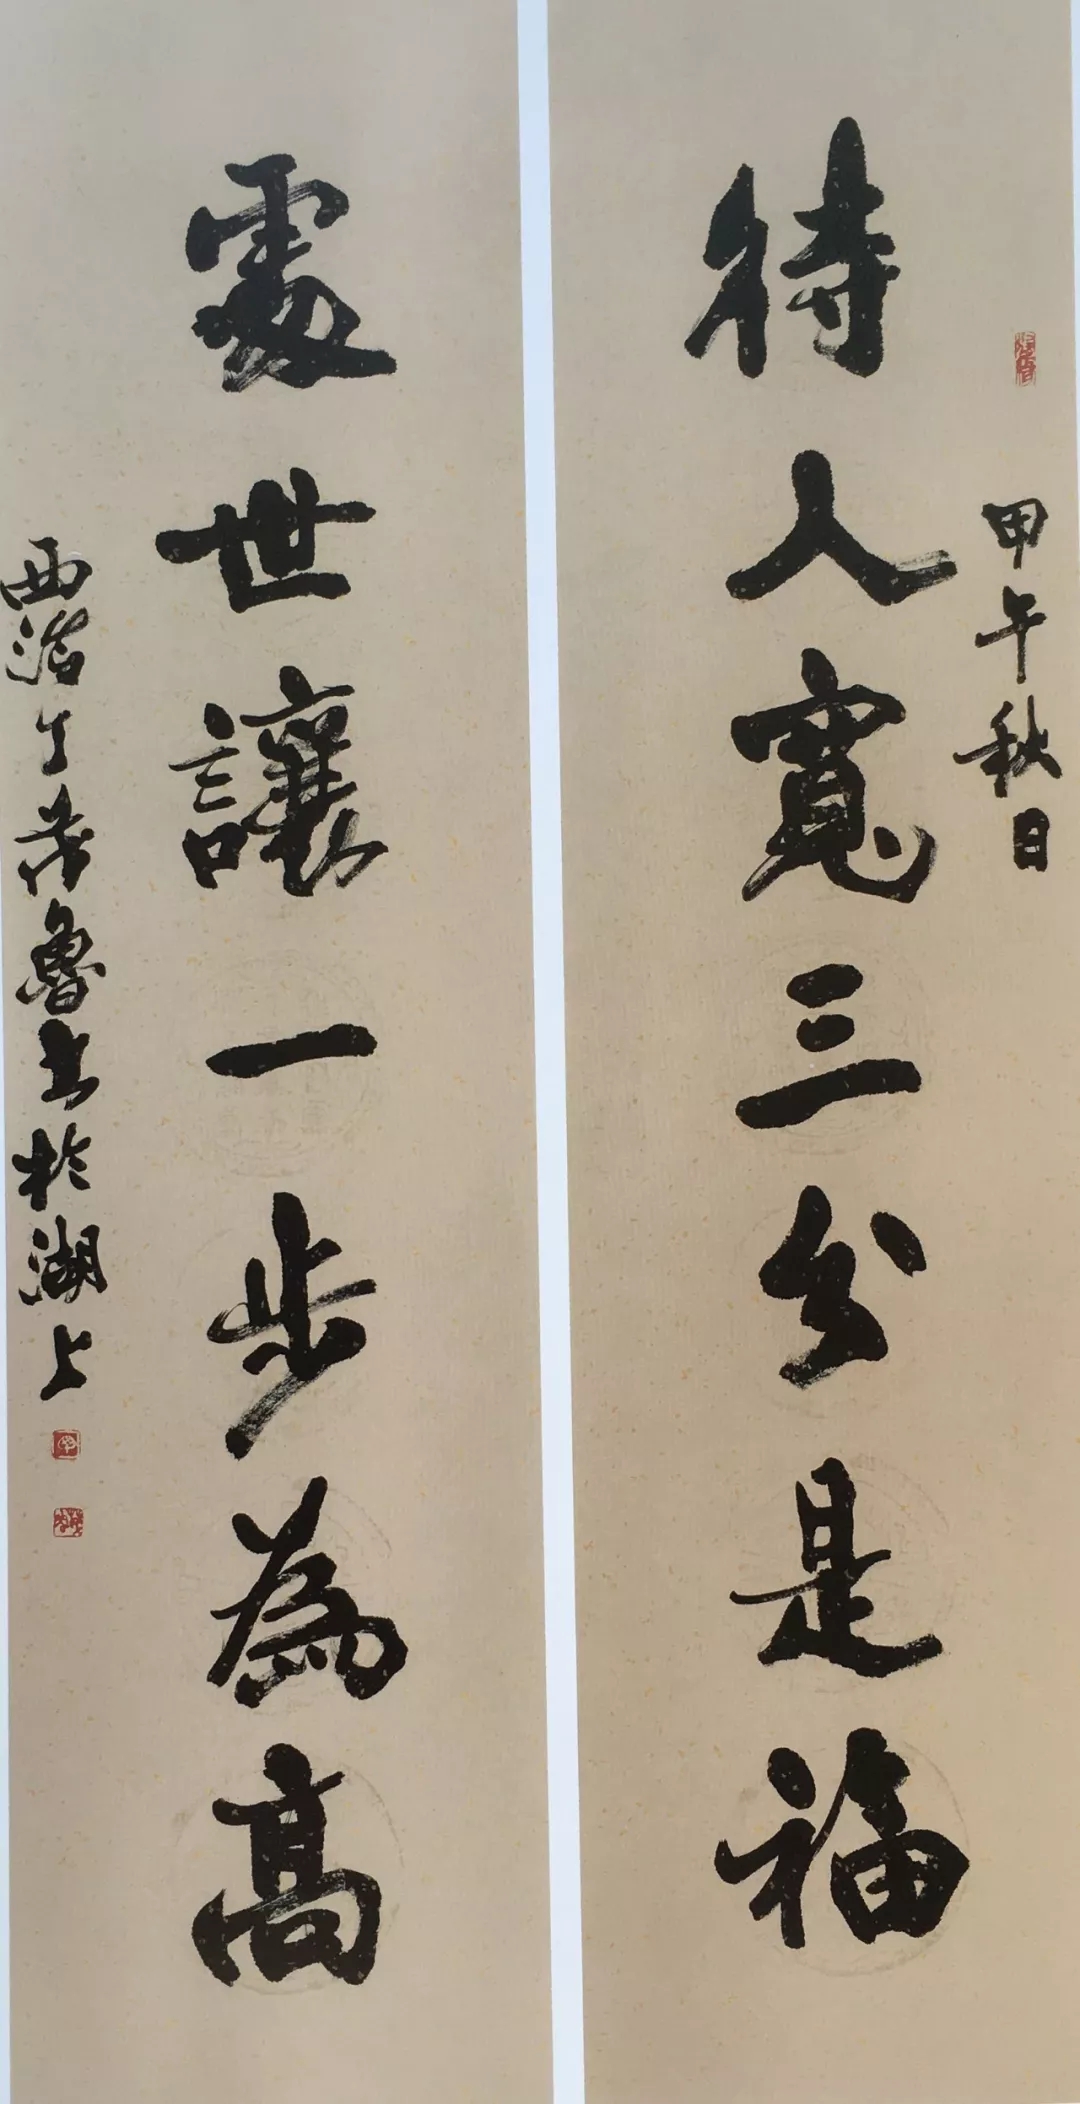 甲午秋日
待人寬三分是福
處世讓一步為高
西浩丁茂魯書於湖上